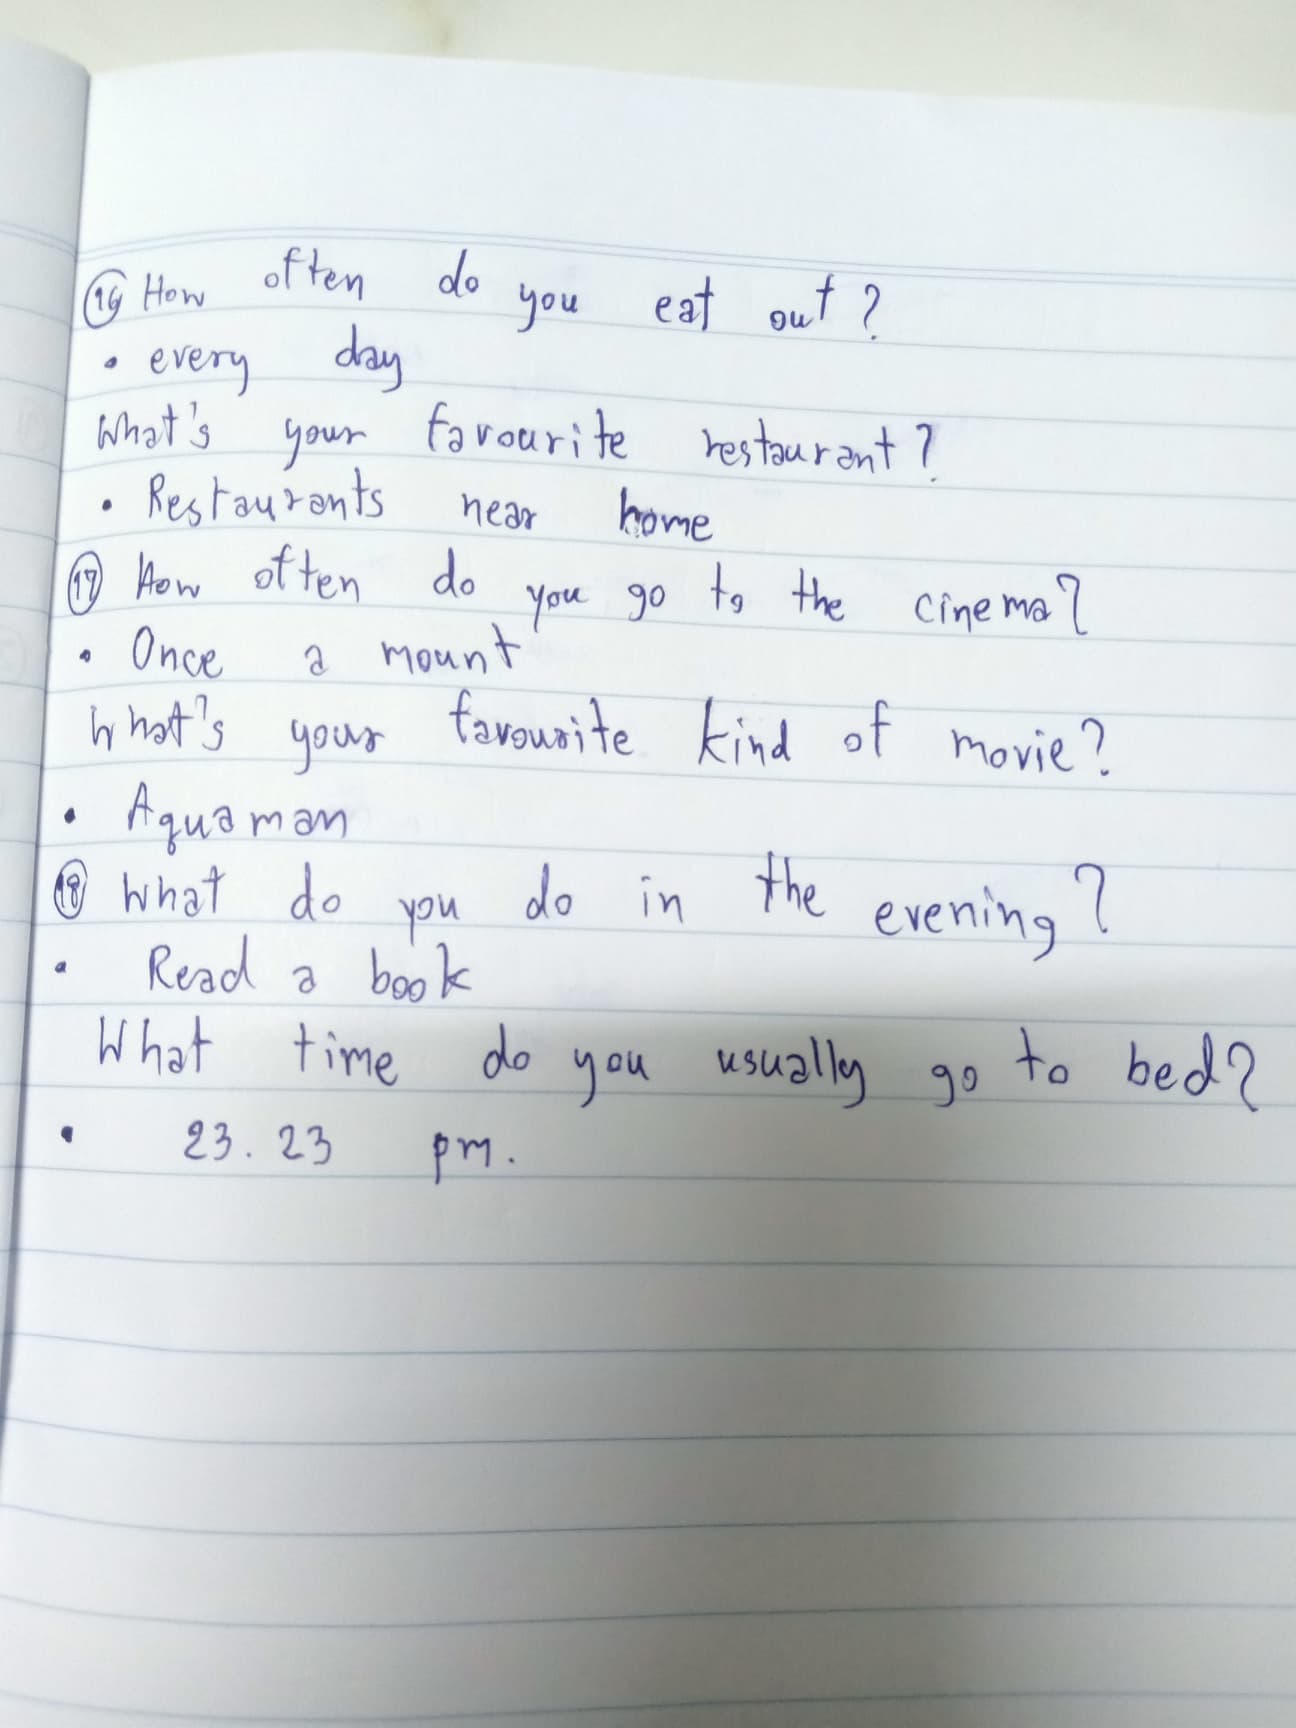 16 How often do you eat out?
• every day
What's your favourite restaurant?
• Restaurants near home
17 How often do you go to the cinema?
• Once a mount
What's your favourite kind of movie?
• Aquaman
18 What do you do in the evening?
• Read a book
What time do you usually go to bed?
• 23.23 pm.